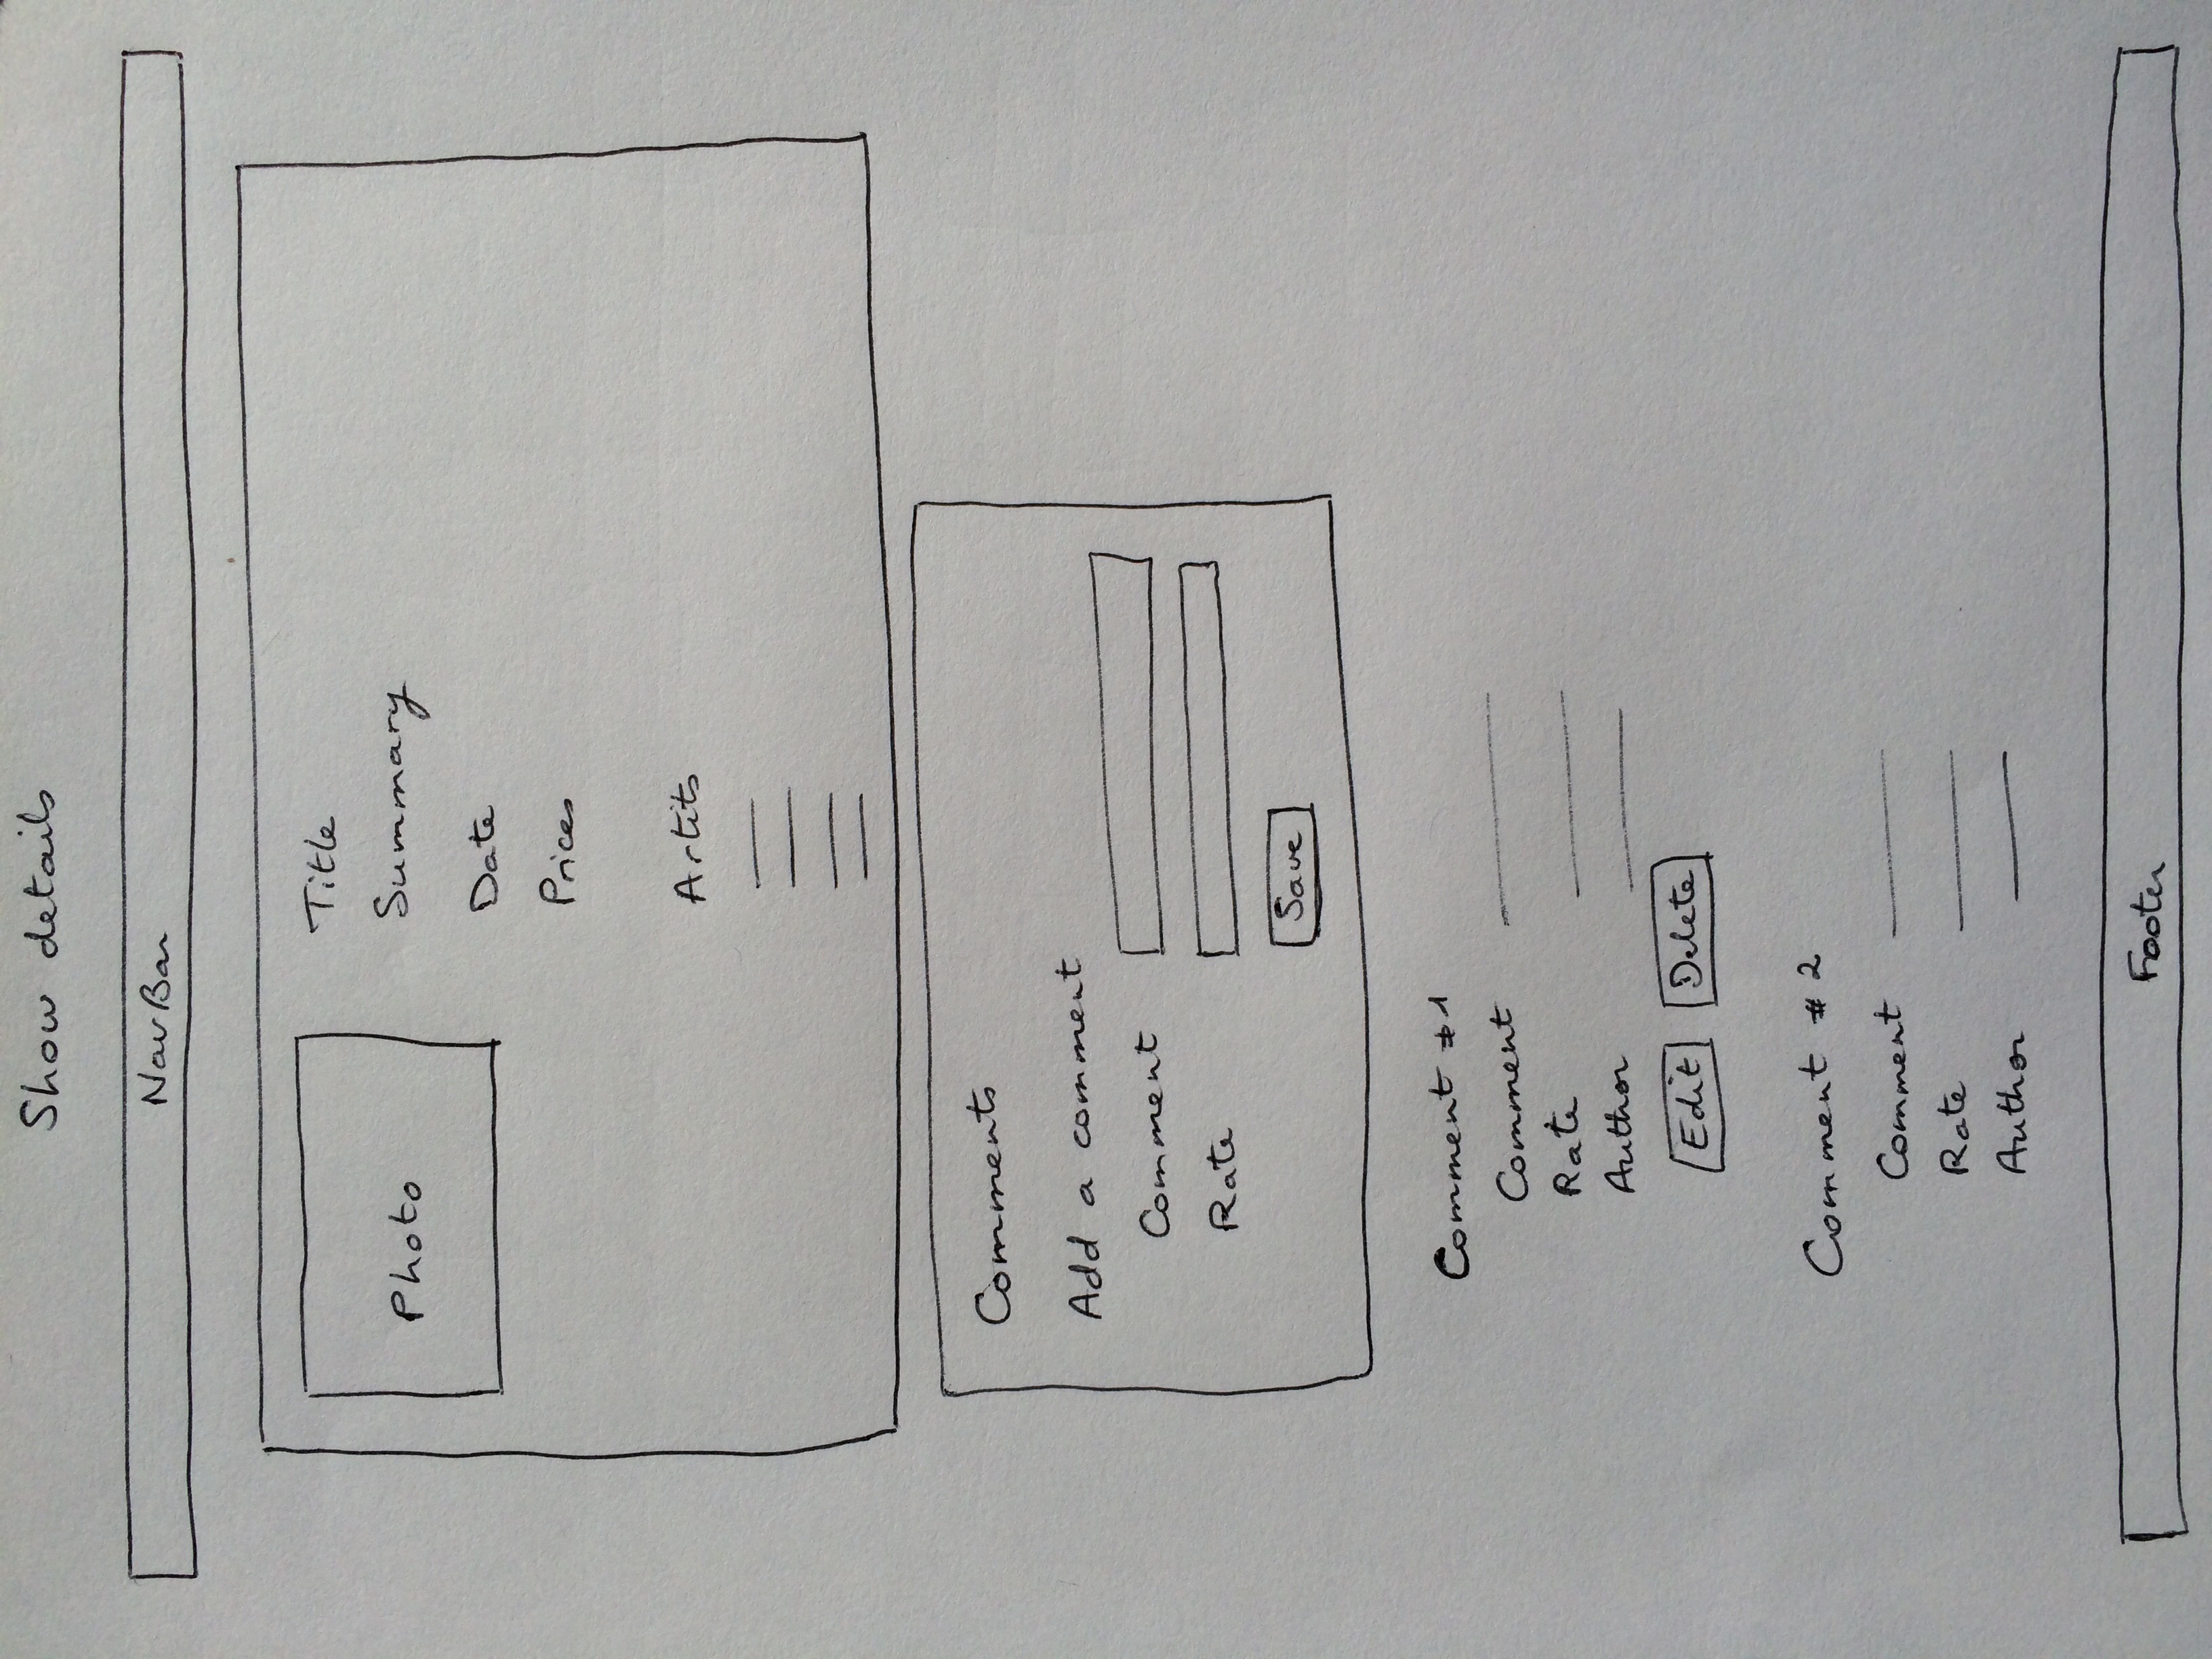 Show details
NavBar
Photo
Title
Summary
Date
Prices
Artits
Comments
Add a comment
Comment
Rate
Save
Comment #1
Comment
Rate
Author
Edit Delete
Comment #2
Comment
Rate
Author
Footer